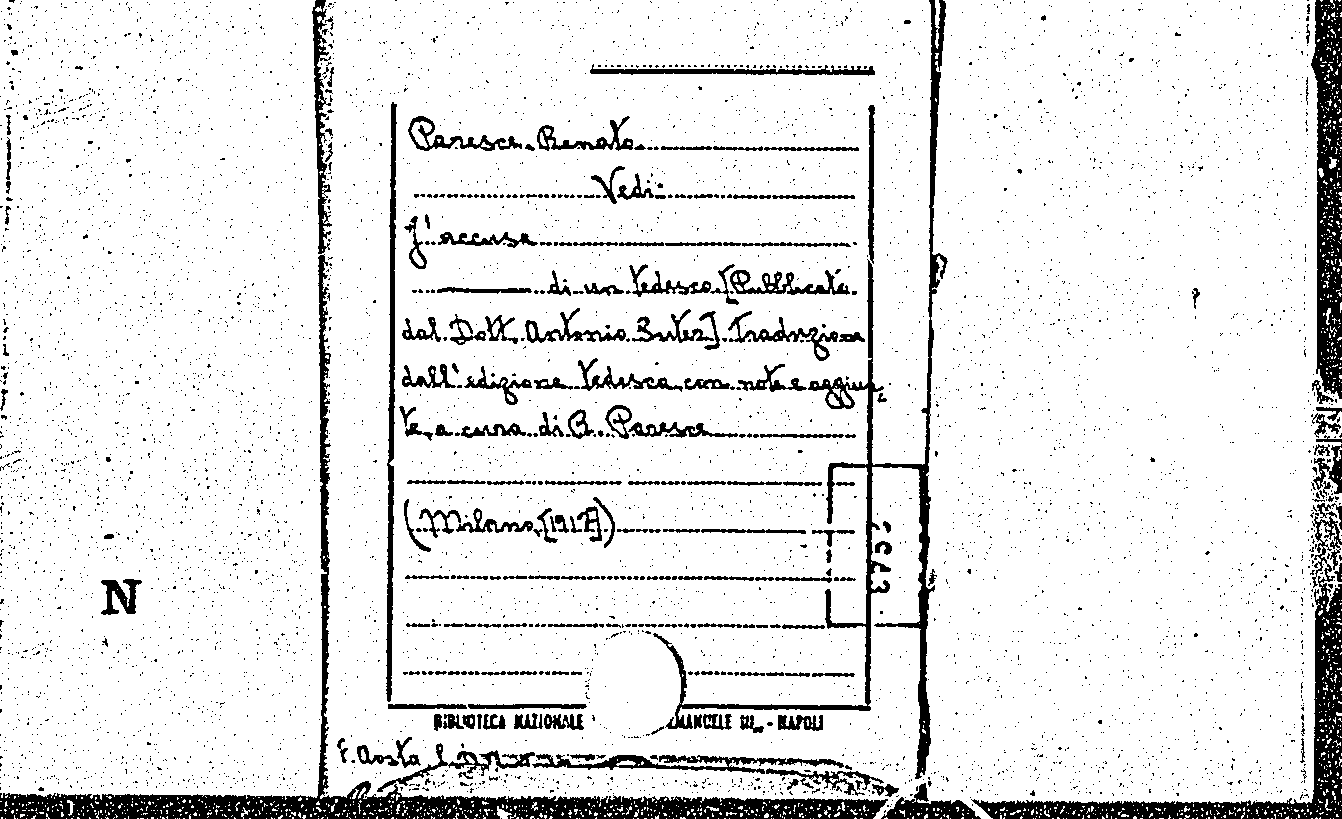 Paresce Renato
Vedi:
J'accuse
di un tedesco [Pubblicato
dal Dott. Antonio Suter] Traduzione
dall'edizione tedesca con note e aggiun-
te a cura di R. Paresce
(Milano, [1917])
N
BIBLIOTECA NAZIONALE EMANUELE III - NAPOLI
F. Aosta